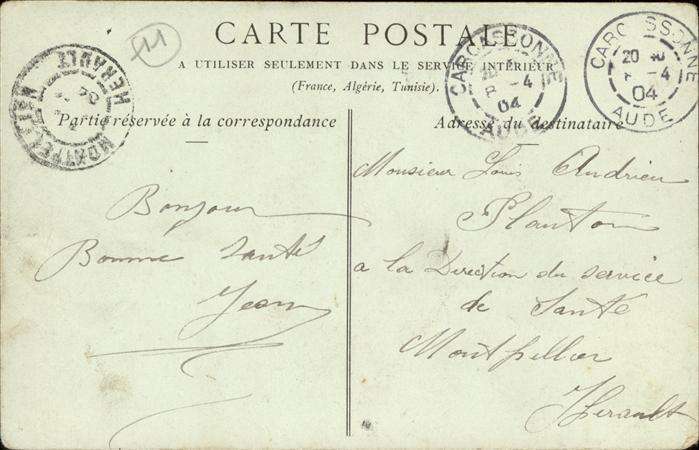 11
CARTE POSTALE
A UTILISER SEULEMENT DANS LE SERVICE INTÉRIEUR
(France, Algérie, Tunisie).
MONTPELLIER
HERAULT
04
CARCASSONNE
8 -4
04
AUDE
CARCASSONNE
20
8 -4
04
AUDE
Partie réservée à la correspondance
Bonjour
Bonne Santé
Jean
Adresse du destinataire
Monsieur Louis Andrieu
Planton
a la Direction du service
de Santé
Montpellier
Herault